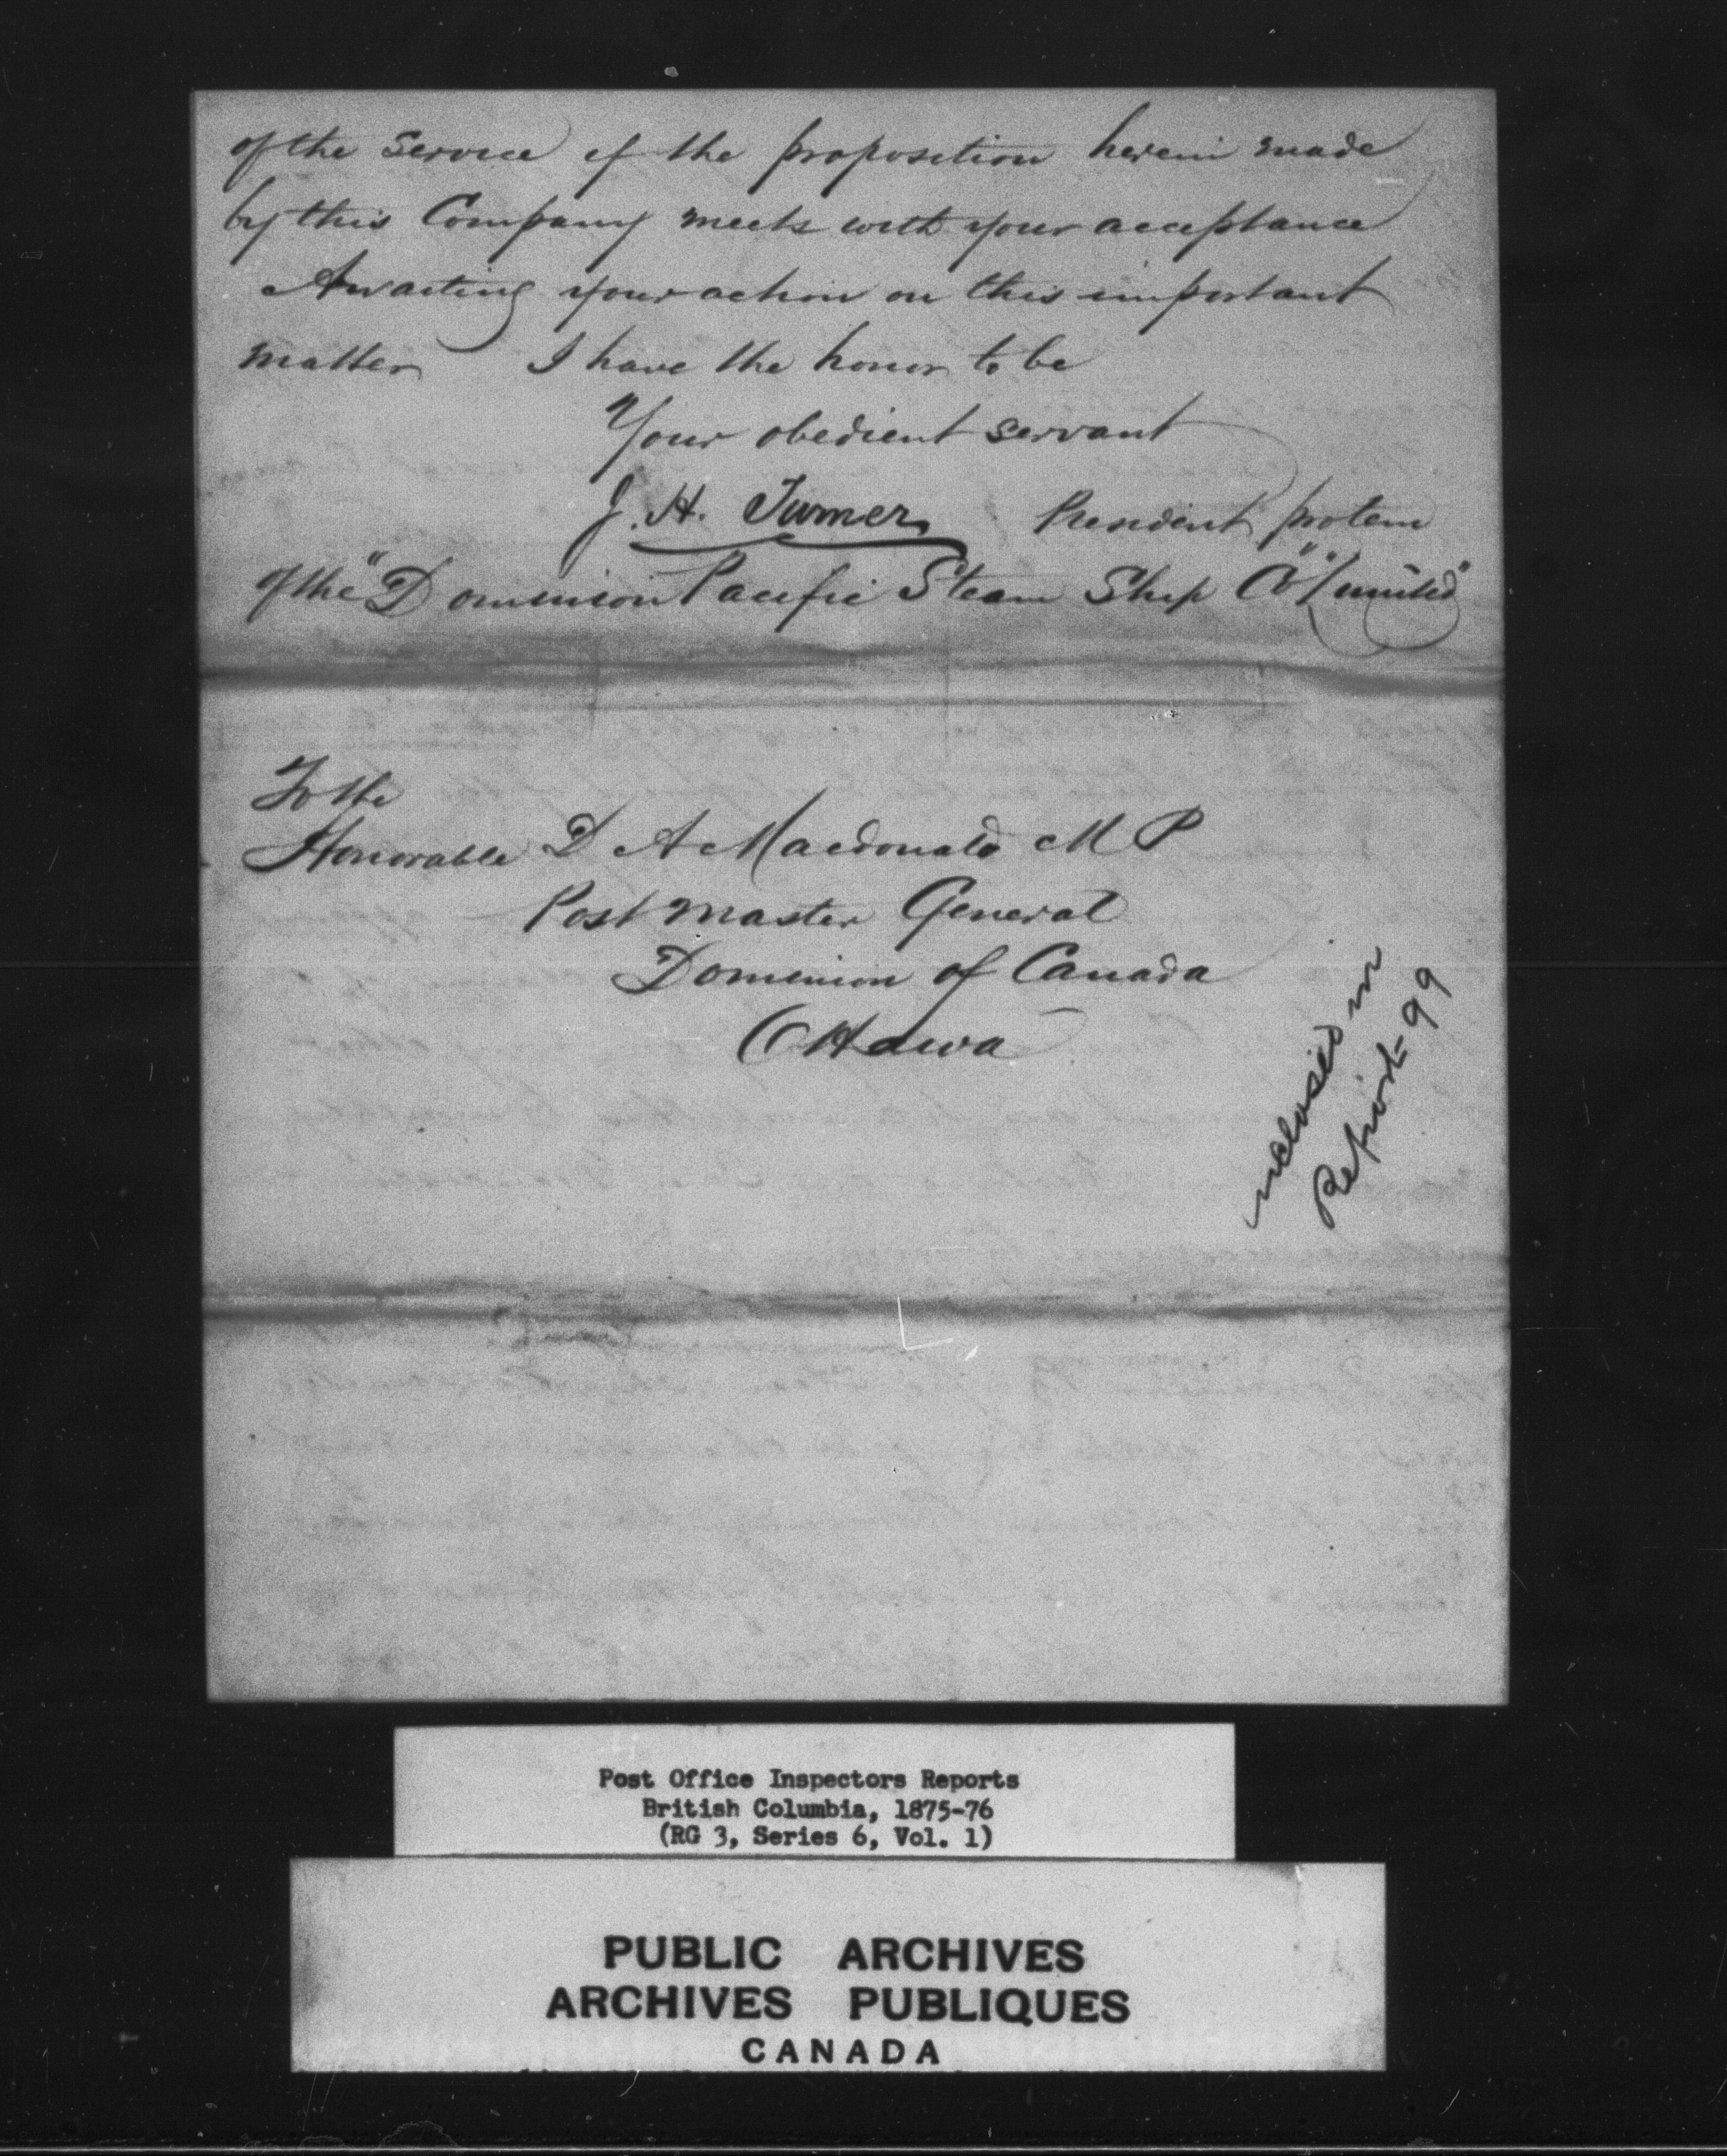 of the Service if the proposition herein made
by this Company meets with your acceptance
Awaiting your action on this important
matter I have the honor to be
Your obedient servant
J. H. Turner President protem
of the "Dominion Pacific Steam Ship Co" "Limited"
To the
Honorable D A Macdonald M P
Post Master General
Dominion of Canada
Ottawa
inclosed in
Report 99
Post Office Inspectors Reports
British Columbia, 1875-76
(RG 3, Series 6, Vol. 1)
PUBLIC ARCHIVES
ARCHIVES PUBLIQUES
CANADA